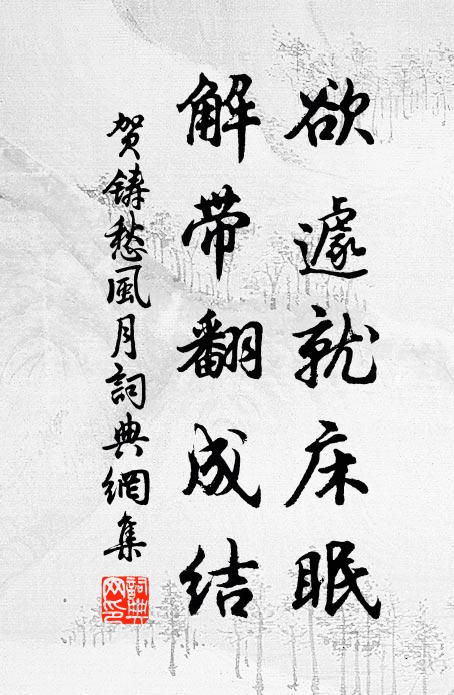 欲遽就床眠
解带翻成结
贺铸愁風月詞典網集
詞典網印